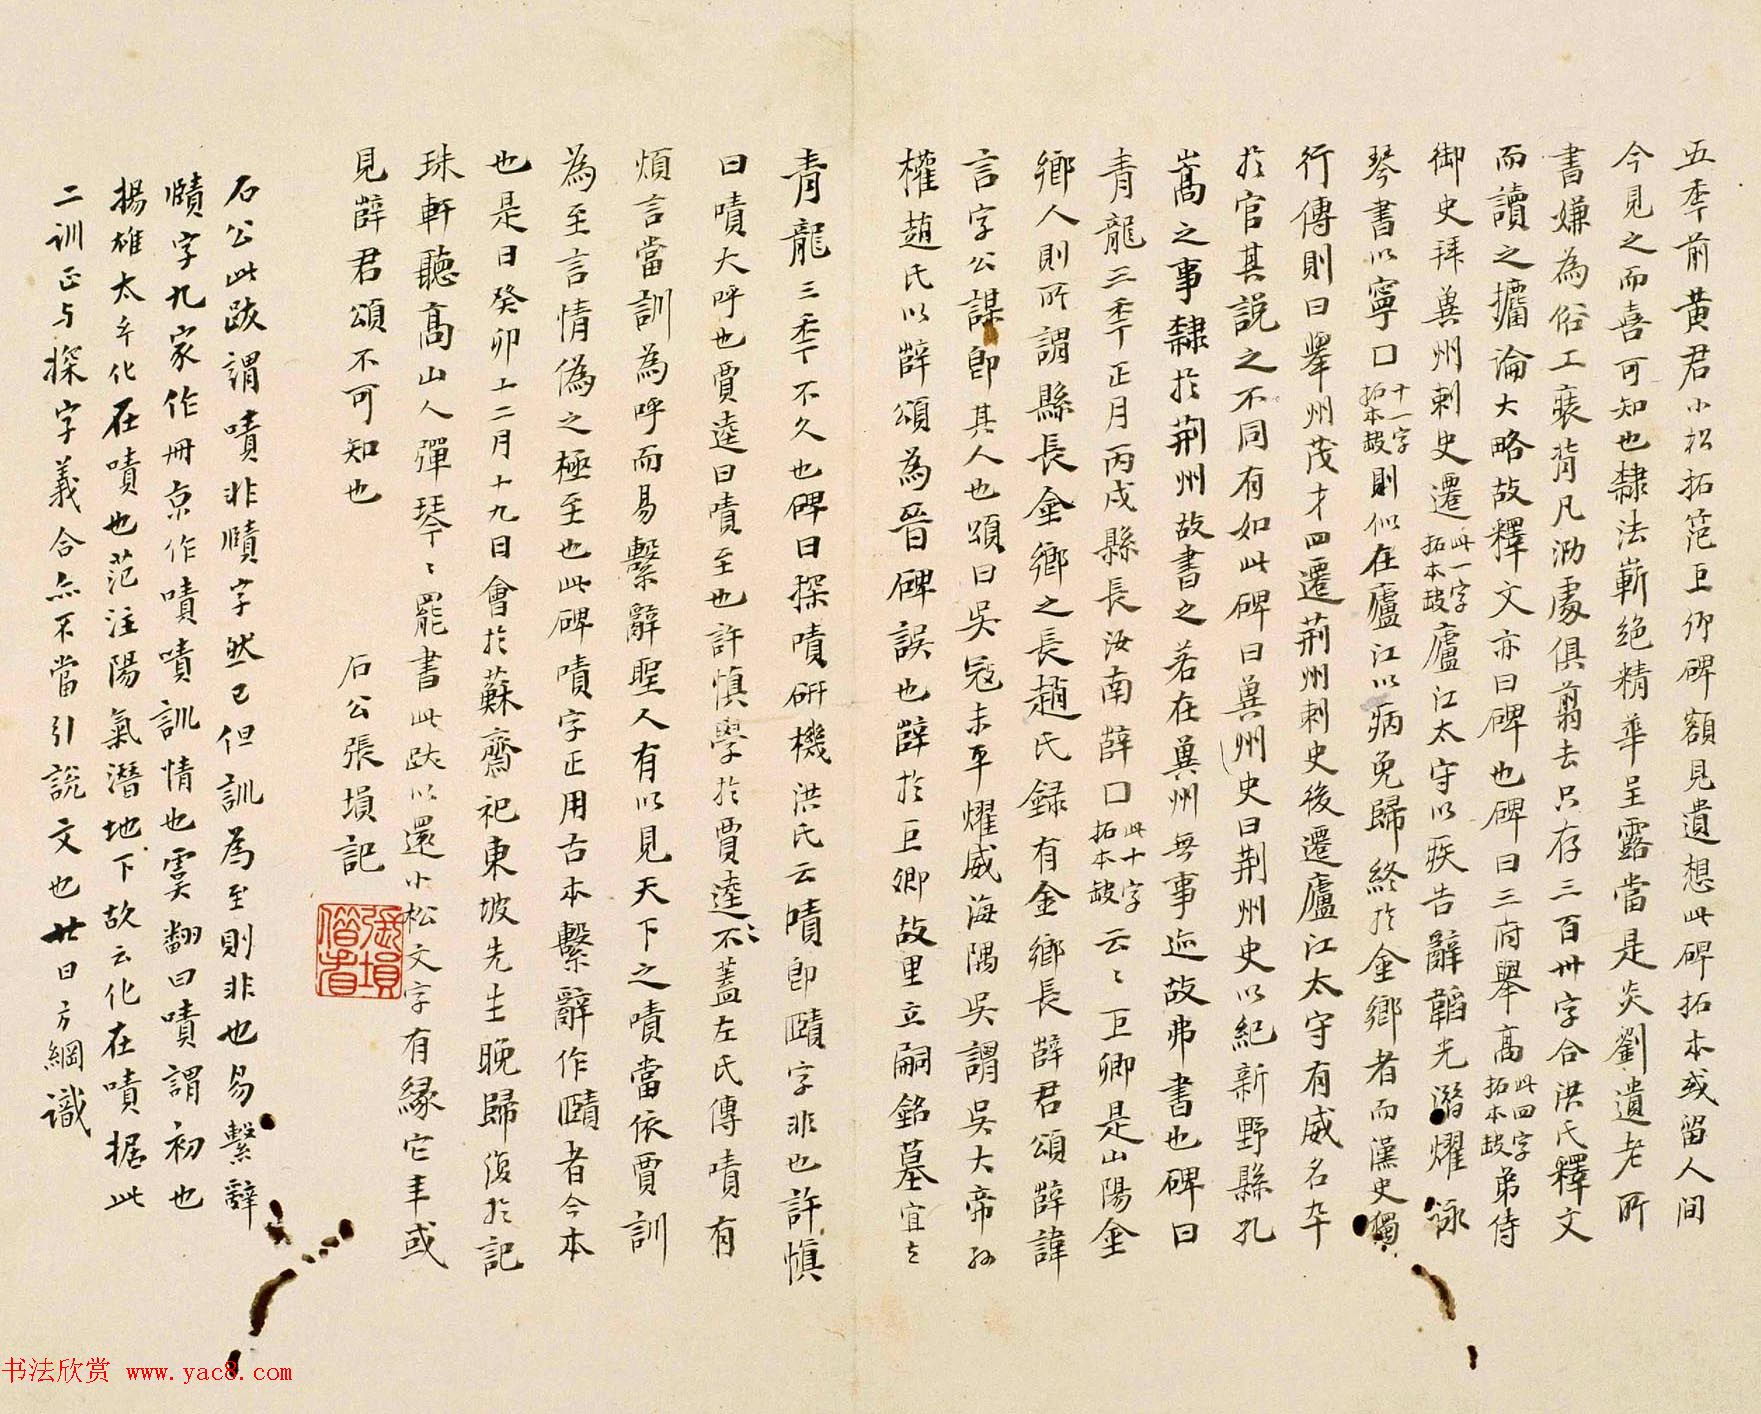 五季前黃君小松拓范巨卿碑額見遺想此碑拓本或留人間
今見之而喜可知也隸法嶄絕精華呈露當是炎劉遺老所
書嫌為俗工裝背凡泐處俱翦去只存三百卅字合洪氏釋文
而讀之攟淪大略故釋文亦曰碑也碑曰三府舉高此四字拓本缺弟侍
御史拜兾州刺史遷此一字拓本缺廬江太守以疾告辭韜光潛燿詠
琴書以寧口十一字拓本缺則似在廬江以病免歸終於金鄉者而漢史獨
行傳則曰舉州茂才四遷荊州刺史後遷廬江太守有威名卒
於官其說之不同有如此碑曰兾州史曰荊州史以紀新野縣孔
嵩之事隸於荊州故書之若在兾州無事迹故弗書也碑曰
青龍三季正月丙戌縣長汝南薛口此十字拓本缺云〻巨卿是山陽金
鄉人則所謂縣長金鄉之長趙氏錄有金鄉長薛君頌薛諱
言字公謀即其人也頌曰吳寇未平燿威海隅吳謂吳大帝孫
權趙氏以薛頌為晉碑誤也薛於巨卿故里立嗣銘墓宜在
青龍三季不久也碑曰探嘖研機洪氏云嘖即賾字非也許慎
曰嘖大呼也賈逵曰嘖至也許慎學於賈逵〻不蓋左氏傳嘖有
煩言當訓為呼而易繫辭聖人有以見天下之嘖當依賈訓
為至言情偽之極至也此碑嘖字正用古本繫辭作賾者今本
也是日癸卯十二月十九日會於蘇齋祀東坡先生晚歸復於記
珠軒聽高山人彈琴〻罷書此跋以還小松文字有緣它年或
見薛君頌不可知也
石公張塤記
張塤僭書
石公此跋謂嘖非賾字然已但訓為至則非也易繫辭
賾字九家作冊京作嘖嘖訓情也虞翻曰嘖謂初也
揚雄太玄化在嘖也范注陽氣潛地下故云化在嘖據此
二訓正与探字義合亦不當引說文也廿日方綱識
书法欣赏 www.yac8.com